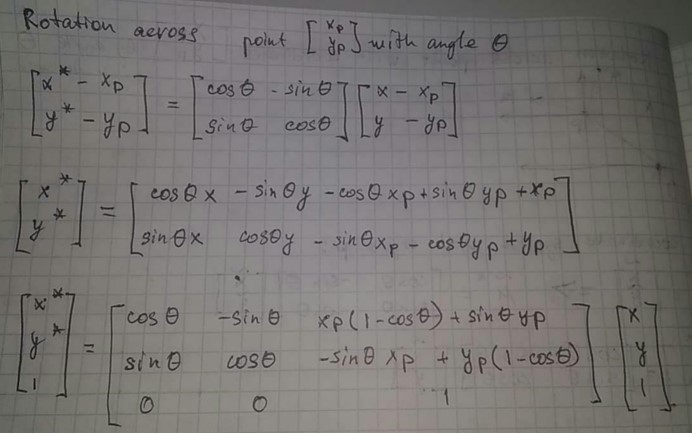 Rotation across point [xp yp] with angle θ
[x* - xp
y* - yp] = [cosθ - sinθ
sinθ cosθ] [x - xp
y - yp]
[x*
y*] = [cosθx - sinθy - cosθxp + sinθyp + xp
sinθx cosθy - sinθxp - cosθyp + yp]
[x*
y*
1] = [cosθ -sinθ xp(1-cosθ) + sinθyp
sinθ cosθ -sinθxp + yp(1-cosθ)
0 0 1] [x
y
1]